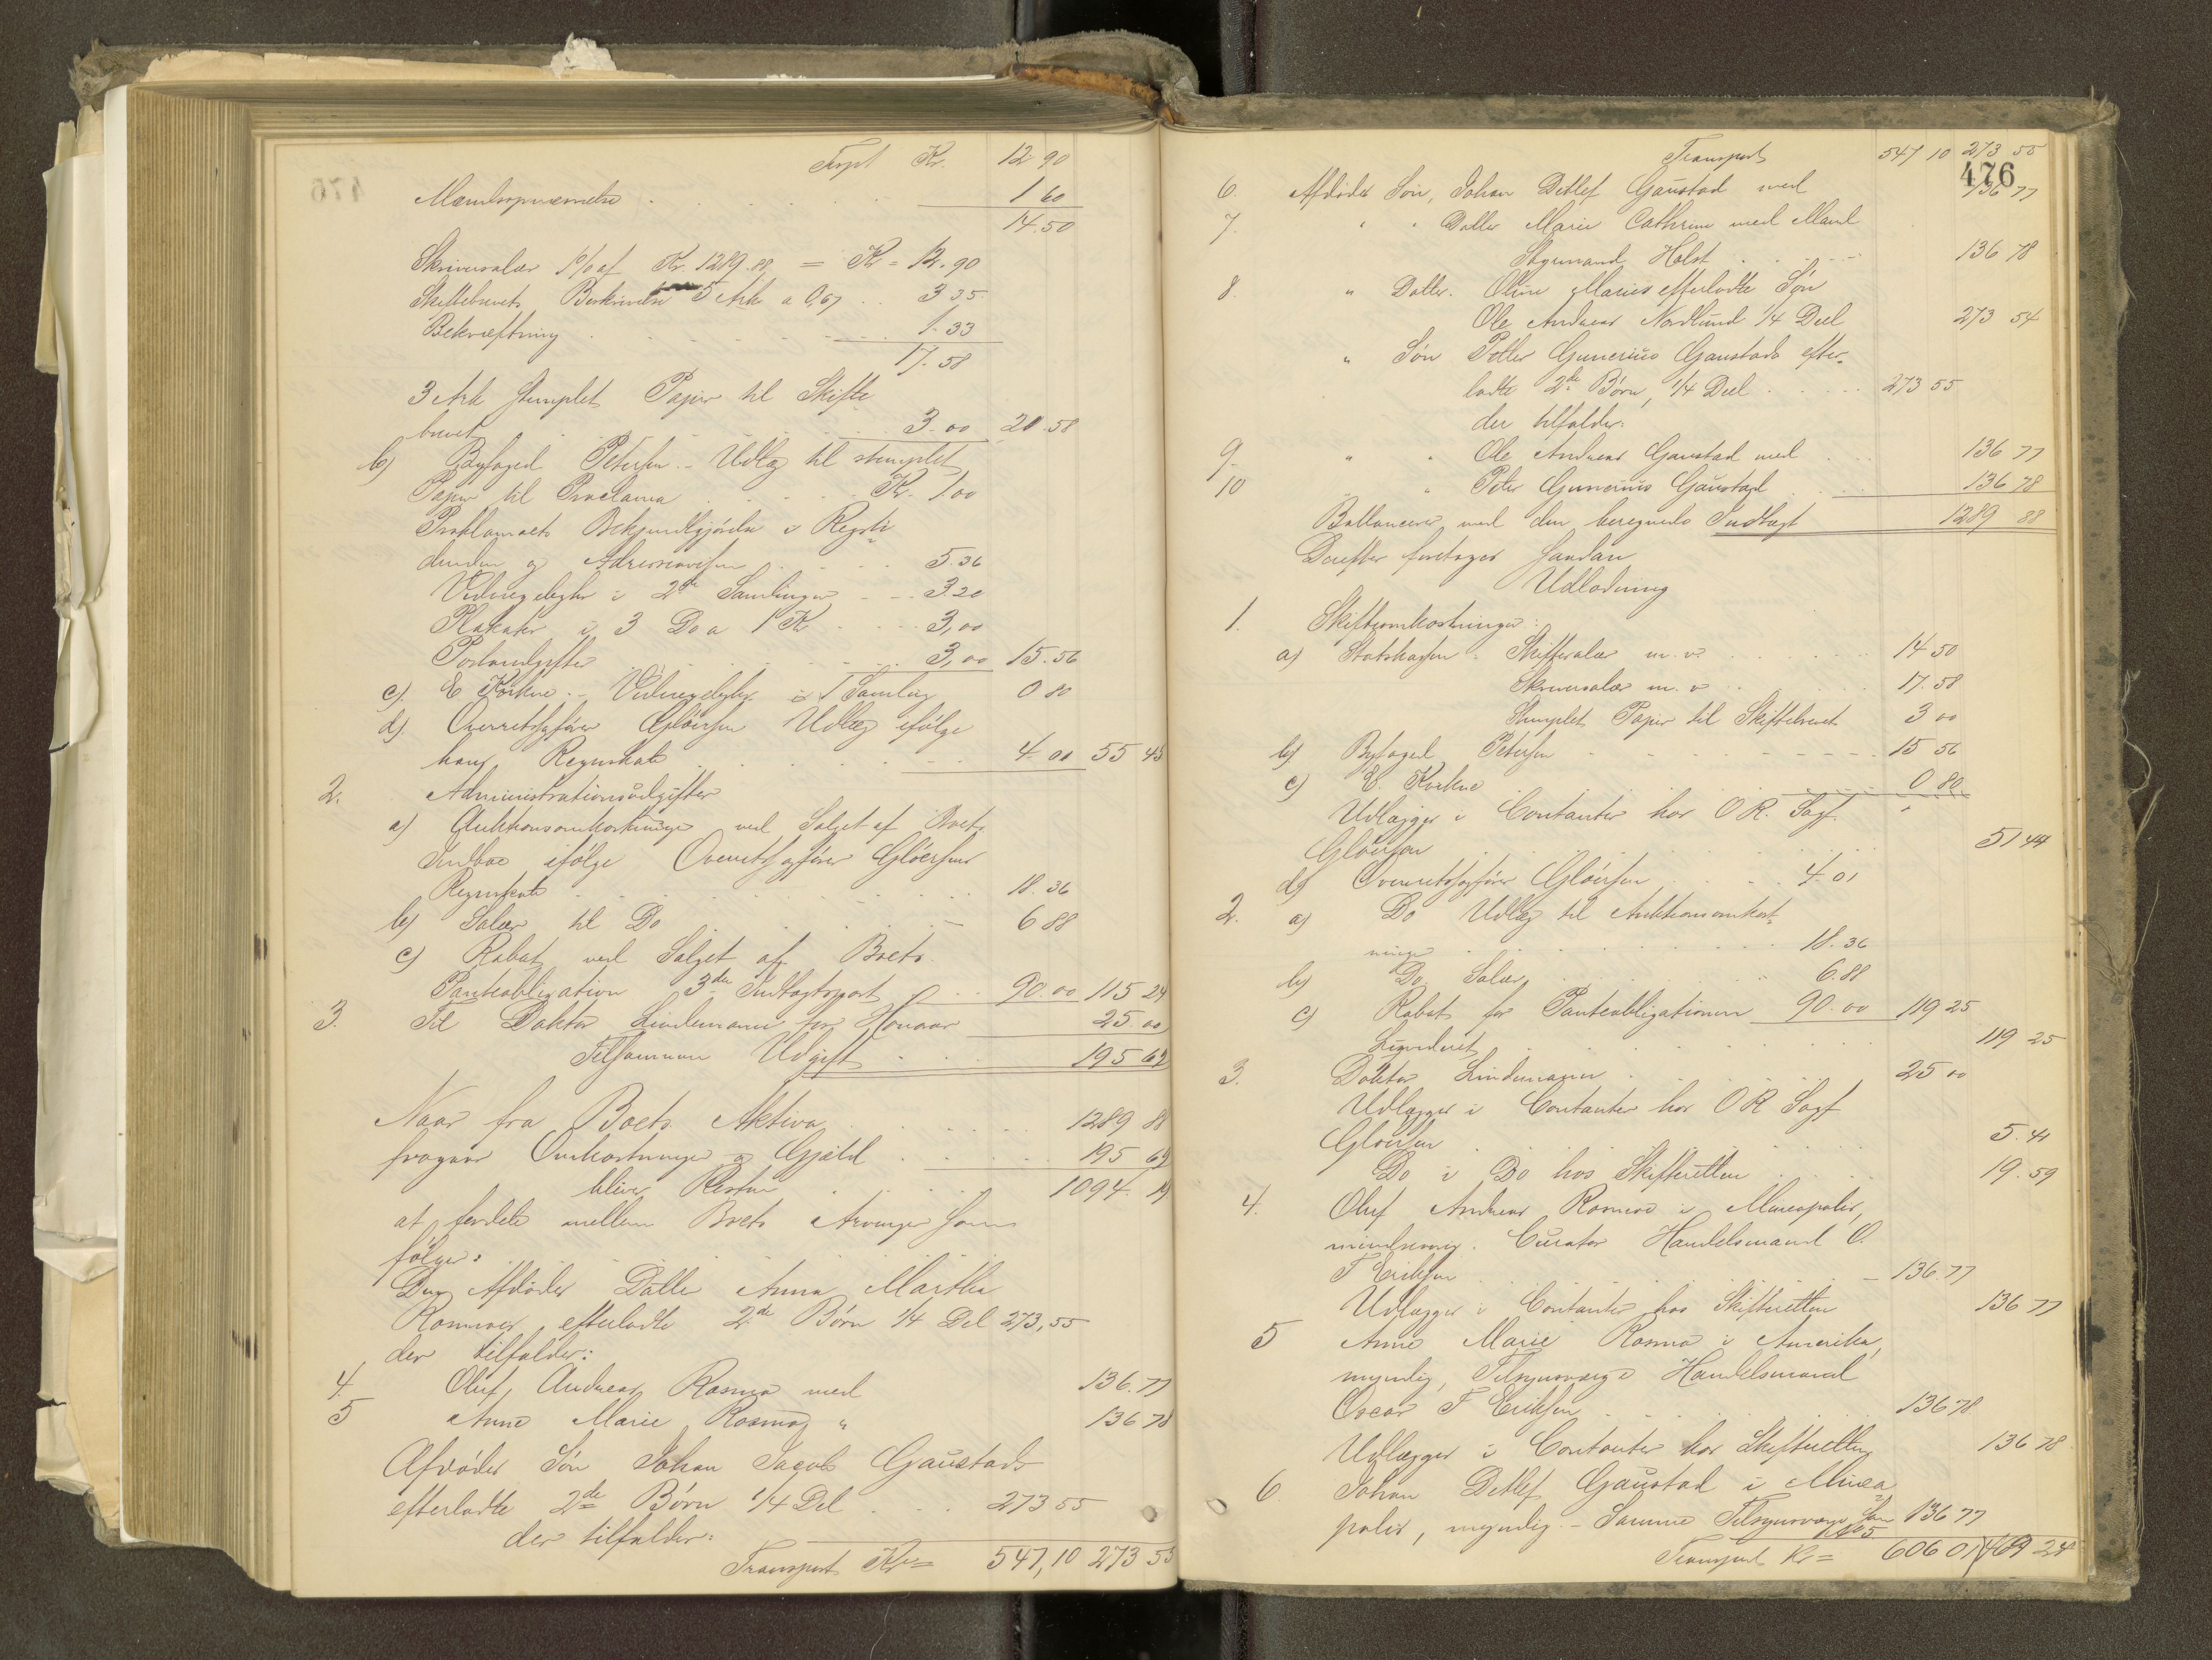 Trspt Kr. 12 90
Mændsopnævnelse . . . 1 60
14.50
Skriversalær 1% af Kr. 1289.88 = Kr = 12.90
Skiftebrevets Beskrivelse 5 Ark a 0,67 .. 3 35
Bekræftning . . . 1.33
17.58
3 Ark stemplet Papir til Skifte
brevet . . . 3.00 20.58
b) Byfoged Petersen. - Udlæg til stemplet
Papir til Proclama . . . Kr. 1.00
Proklamaets Bekjendtgjørelse i Rigsti
denden og Adresseavisen . . . 5.36
Vidnegebyhr i 2de Samlinger - - 3.20
Plakater i 3 Do a 1 Kr . . . 3,00
Postudgifter . . . 3,00 15.56
c). E Kvikne. - Vidnegebyhr i 1 Samling 0 80
d). Overretssagfører Gløersen Udlæg ifølge
hans Regnskab . . . 4.01 55 45
2. Administrationsudgifter
a) Auktionsomkostninger ved Salget af Boets
Indbo ifølge Overretssagfører Gløersens
Regnskab . . . 18.36
b) Salær til Do . . . 6 88
c) Rabat ved Salget af Boets
Panteobligation 3die Indtægtspost . . 90.00 115 24
3. Til Doktor Lindemann for Honorar 25.00
Tilsammen Udgift . . . 195 69
Naar fra Boets Aktiva . . . 1289 88
fragaar Omkostninger og Gjæld . . . 195 69
bliver Resten . . . 1094.19
at fordele mellem Boets Arvinger som
følger:
Den Afdødes Datter Anna Martha
Rosmoes efterladte 2de Børn 1/4 Del 273,55
der tilfalder:
4. Oluf Andreas Rosmo med 136.77
5 Anne Marie Rosmo " 136 78
Afdødes Søn Johan Jacob Gaustads
efterladte 2de Børn 1/4 Del . . . 273 55
der tilfalder:
Transport Kr= 547,10 273 55
Transport 547 10 273 55
476
6. Afdødes Søn, Johan Detlef Gaustad med 136 77
7. " " Datter Marie Cathrine med Mand
Styrmand Holst . . . 136 78
8. " Datter. Oline Maries efterladte Søn
Ole Andreas Nordlund 1/4 Deel 273 54
" Søn Petter Gunerius Gaustads efter-
ladte 2de Børn, 1/4 Deel . . . 273 55
der tilfalder:
9. " " Ole Andreas Gaustad med . . 136 77
10 " Peter Gunerius Gaustad . . . 136 78
Ballancerer med den beregnede Indtægt 1289 88
Derefter foretages saadan
Udlodning
1. Skifteomkostninger:
a) Statskassen: Skiftesalær m. v. . . . 14 50
Skriversalær m. v . . . 17.58
Stemplet Papir til Skiftebrevet 3 00
b) Byfoged Petersen . . . 15 56
c) E. Kvikne . . . 0 80
Udlægges i Contanter hos O R. Sagf.
Gløersen . . . 51 44
d) Overretssagfører Gløersen . . . 4.01
2. a) Do Udlæg til Auktionsomkost-
ninger . . . 18.36
b) Do Salær . . . 6.88
c) Rabat for Panteobligationen 90.00 119 25
Ligvideret . . . 119 25
3. Doktor Lindemann . . . 25 00
Udlægges i Contanter hos O R Sagf
Gløersen . . . 5.41
Do i Do hos Skifteretten . . . 19.59
4. Oluf Andreas Rosmoe i Mineapolis,
mindreaarig. Curator Handelsmand O.
F Eriksen . . . 136.77
Udlægges i Contanter hos Skifteretten 136 77
5 Anne Marie Rosmo i Amerika,
myndig, Tilsynsværge Handelsmand
Oscar F Eriksen . . . 136 78
Udlægges i Contanter hos Skifteretten 136 78
6. Johan Detlef Gaustad i Minea
polis, myndig. - Samme Tilsynsværge som 136 77
No 5
Transport Kr = 606 01 469 24